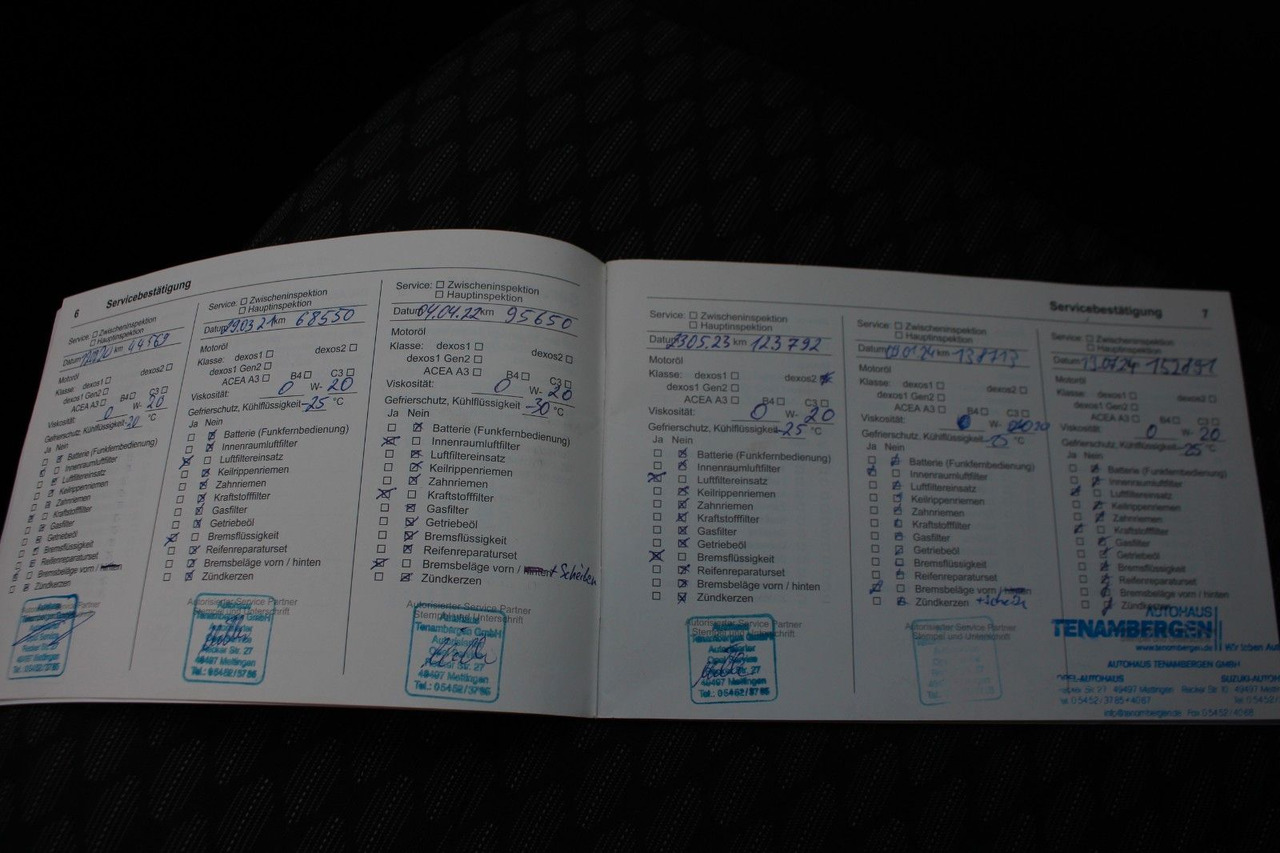 6 Servicebestätigung
Service: ☐ Zwischeninspektion
☐ Hauptinspektion
Datum km 44569
Motoröl
Klasse: dexos1 ☐ dexos2 ☐
dexos1 Gen2 ☐
ACEA A3 ☐ B4 ☐ C3 ☐
Viskosität: 0 W- 20
Gefrierschutz, Kühlflüssigkeit °C
Ja Nein
Batterie (Funkfernbedienung)
Innenraumluftfilter
Luftfiltereinsatz
Keilrippenriemen
Zahnriemen
Kraftstofffilter
Gasfilter
Getriebeöl
Bremsflüssigkeit
Reifenreparaturset
Bremsbeläge vorn /
Zündkerzen
Service: ☐ Zwischeninspektion
☐ Hauptinspektion
Datum 19.03.21 km 68550
Motoröl
Klasse: dexos1 ☐ dexos2 ☐
dexos1 Gen2 ☐
ACEA A3 ☐ B4 ☐ C3 ☐
Viskosität: 0 W- 20
Gefrierschutz, Kühlflüssigkeit -25 °C
Ja Nein
Batterie (Funkfernbedienung)
Innenraumluftfilter
Luftfiltereinsatz
Keilrippenriemen
Zahnriemen
Kraftstofffilter
Gasfilter
Getriebeöl
Bremsflüssigkeit
Reifenreparaturset
Bremsbeläge vorn / hinten
Zündkerzen
Autorisierter Service Partner
Stempel und Unterschrift
Autohaus
Tenambergen GmbH
Recker Str. 27
49497 Mettingen
Tel.: 05452/3785
Service: ☐ Zwischeninspektion
☐ Hauptinspektion
Datum 04.04.22 km 95650
Motoröl
Klasse: dexos1 ☐ dexos2 ☐
dexos1 Gen2 ☐
ACEA A3 ☐ B4 ☐ C3 ☐
Viskosität: 0 W- 20
Gefrierschutz, Kühlflüssigkeit -30 °C
Ja Nein
Batterie (Funkfernbedienung)
Innenraumluftfilter
Luftfiltereinsatz
Keilrippenriemen
Zahnriemen
Kraftstofffilter
Gasfilter
Getriebeöl
Bremsflüssigkeit
Reifenreparaturset
Bremsbeläge vorn / hinten + Scheiben
Zündkerzen
Autorisierter Service Partner
Stempel und Unterschrift
Autohaus
Tenambergen GmbH
49497 Mettingen
Tel.: 05452/3785
Servicebestätigung 7
Service: ☐ Zwischeninspektion
☐ Hauptinspektion
Datum 23.05.23 km 123792
Motoröl
Klasse: dexos1 ☐ dexos2
dexos1 Gen2 ☐
ACEA A3 ☐ B4 ☐ C3 ☐
Viskosität: 0 W- 20
Gefrierschutz, Kühlflüssigkeit -25 °C
Ja Nein
Batterie (Funkfernbedienung)
Innenraumluftfilter
Luftfiltereinsatz
Keilrippenriemen
Zahnriemen
Kraftstofffilter
Gasfilter
Getriebeöl
Bremsflüssigkeit
Reifenreparaturset
Bremsbeläge vorn / hinten
Zündkerzen
Autorisierter Service Partner
Stempel und Unterschrift
Autohaus
Tenambergen GmbH
Autorisierter
Recker Str. 27
49497 Mettingen
Tel.: 05452/3785
Service: ☐ Zwischeninspektion
☐ Hauptinspektion
Datum km 138713
Motoröl
Klasse: dexos1 ☐ dexos2 ☐
dexos1 Gen2 ☐
ACEA A3 ☐ B4 ☐ C3 ☐
Viskosität: 0 W- 20
Gefrierschutz, Kühlflüssigkeit -25 °C
Ja Nein
Batterie (Funkfernbedienung)
Innenraumluftfilter
Luftfiltereinsatz
Keilrippenriemen
Zahnriemen
Kraftstofffilter
Gasfilter
Getriebeöl
Bremsflüssigkeit
Reifenreparaturset
Bremsbeläge vorn /
Zündkerzen
Autorisierter Service Partner
Stempel und Unterschrift
Service: ☐ Zwischeninspektion
☐ Hauptinspektion
Datum 13.07.24 152891
Motoröl
Klasse: dexos1 ☐ dexos2 ☐
dexos1 Gen2 ☐
ACEA A3 ☐ B4 ☐ C3 ☐
Viskosität: 0 W- 20
Gefrierschutz, Kühlflüssigkeit -25 °C
Ja Nein
Batterie (Funkfernbedienung)
Innenraumluftfilter
Luftfiltereinsatz
Keilrippenriemen
Zahnriemen
Kraftstofffilter
Gasfilter
Getriebeöl
Bremsflüssigkeit
Reifenreparaturset
Bremsbeläge vorn /
Zündkerzen
AUTOHAUS
TENAMBERGEN
www.tenambergen.de Wir lieben
AUTOHAUS TENAMBERGEN GMBH
OPEL-AUTOHAUS SUZUKI-AUTOH
Recker Str. 27 49497 Mettingen Recker Str. 10 49497
Tel. 05452/3785+4067
info@tenambergen.de Fax 05452/4068